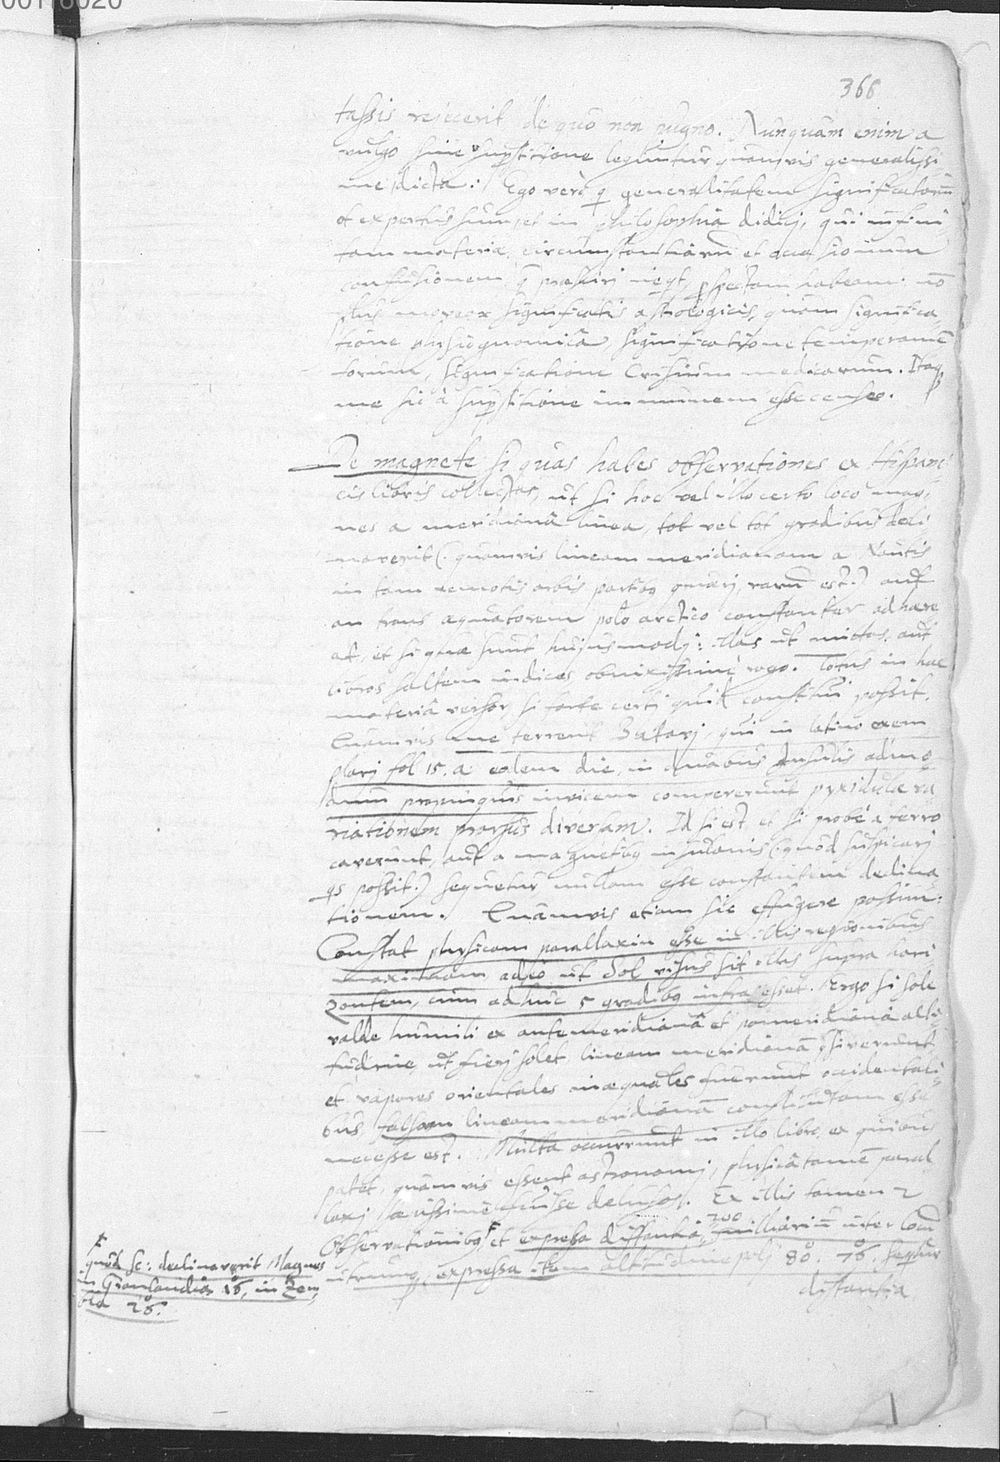 366
tassis rejecerit de quo non pugno. Nunquam enim a
vulgo sine supstitione leguntur quamvis generalissi
me dicta: Ego verò q generalitatem significationũ
et expertus sum, et in philosophia didici, qui infini
tam materiæ, circumstantiarũ et occasionum
confusionem, q̃ præsciri neqt, pspectam habeam: nõ
plus moveor significatis astrologicis, quàm significa,
tione physiognomica, significatione temperamẽ
torum, significatione Crisium medicarum. Itaq
me hic â supstitione immunem esse censeo.
De magnete si quas habes observationes ex Hispani
cis libris collectas, ut si hoc vel illo certo loco mag,
nes a meridianâ linea, tot vel tot gradibus decli
naverit (quamvis lineam meridianam a Nautis
in tam remotis orbis partibq quæri, rarũ est.) aut
an trans æquatorem polo arctico constanter adhære
at, et si quæ sunt hujusmodj: illas ut mittas, aut
libros saltem indices obnixissimè rogo. Totus in hac
materiâ versor, si forte certi quid constitui possit.
Quamvis me terrent Batavj, qui in latino exem
plarj fol 15. a eodem die, in duabus Insulis admo
dum propinquis invicem compererunt pyxidulæ va
riationem prorsus diversam. Id si est, et si probè a ferro
caverunt, aut a magnetibq insulanis (quod suspicari
qs possit.) sequetur nullam esse constantem declina
tionem. Quamvis etiam sic effugere possim:
Constat physicam parallaxin esse in illis regionibus
maximam adeò ut Sol visus sit illis supra hori
zontem, cum adhuc 5 gradibq infra esset. Ergo si sole
valde humili ex antemeridianâ et pomeridianâ alti
tudine ut fieri solet, lineam meridianam
et vapores orientales inæquales fuerunt occidentali
bus, falsam lineam meridianam constitutam esse
necesse est. Multa occurrunt in illo libro, ex quibus
patet, quamvis essent astronomj, physicâ tamẽ paral
laxj sævissimè fuisse delusos. Ex illis tamen 2
Observationibq et expressa distantiâ 200 milliariũ inter locũ
utrumq, expressa etiam altitudine polj 80°. 76. sequitur
distantia
quod sc: declinaverit Magnes
in Gronlandiâ 16, in Zem,
bla 26.